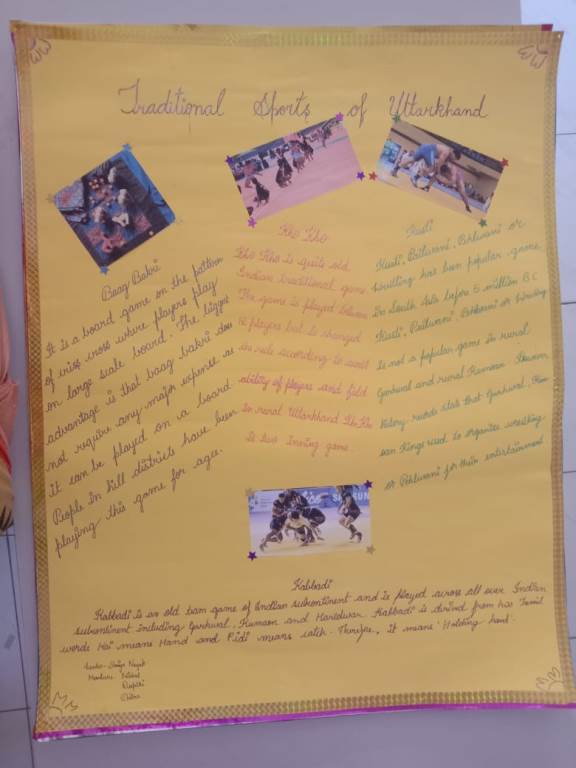 Traditional Sports of Uttarkhand
Baag Bakri
It is a board game on the pattern
of criss cross where players play
on large scale board. The biggest
advantage is that baag bakri does
not require any major expense as
it can be played on a board.
People in hill districts have been
playing this game for ages.
Kho Kho
Kho Kho is quite old
Indian traditional game
The game is played between
12 players but is changed
ability of players and field
In rural Uttarkhand Kho Kho
is two Inning game
Kusti
Kusti, Pailwani, Pehlwani or
Wrestling has been popular game
In South Asia before 5 million B C
Kusti, Pailwani, Pehlwani or Wrestling
is not a popular game in rural
Garhwal and rural Kumaon.
History records state that Garhwal,
Kings used to organize wrestling
or Pehlwani for their entertainment
Kabbadi
Kabbadi is an old team game of Indian subcontinent and is played across all over Indian
subcontinent including Garhwal, Kumaon and Haridwar. Kabbadi is derived from two Tamil
words Kai means Hand and Pidi means catch. Therefore, it means 'Holding hand'.